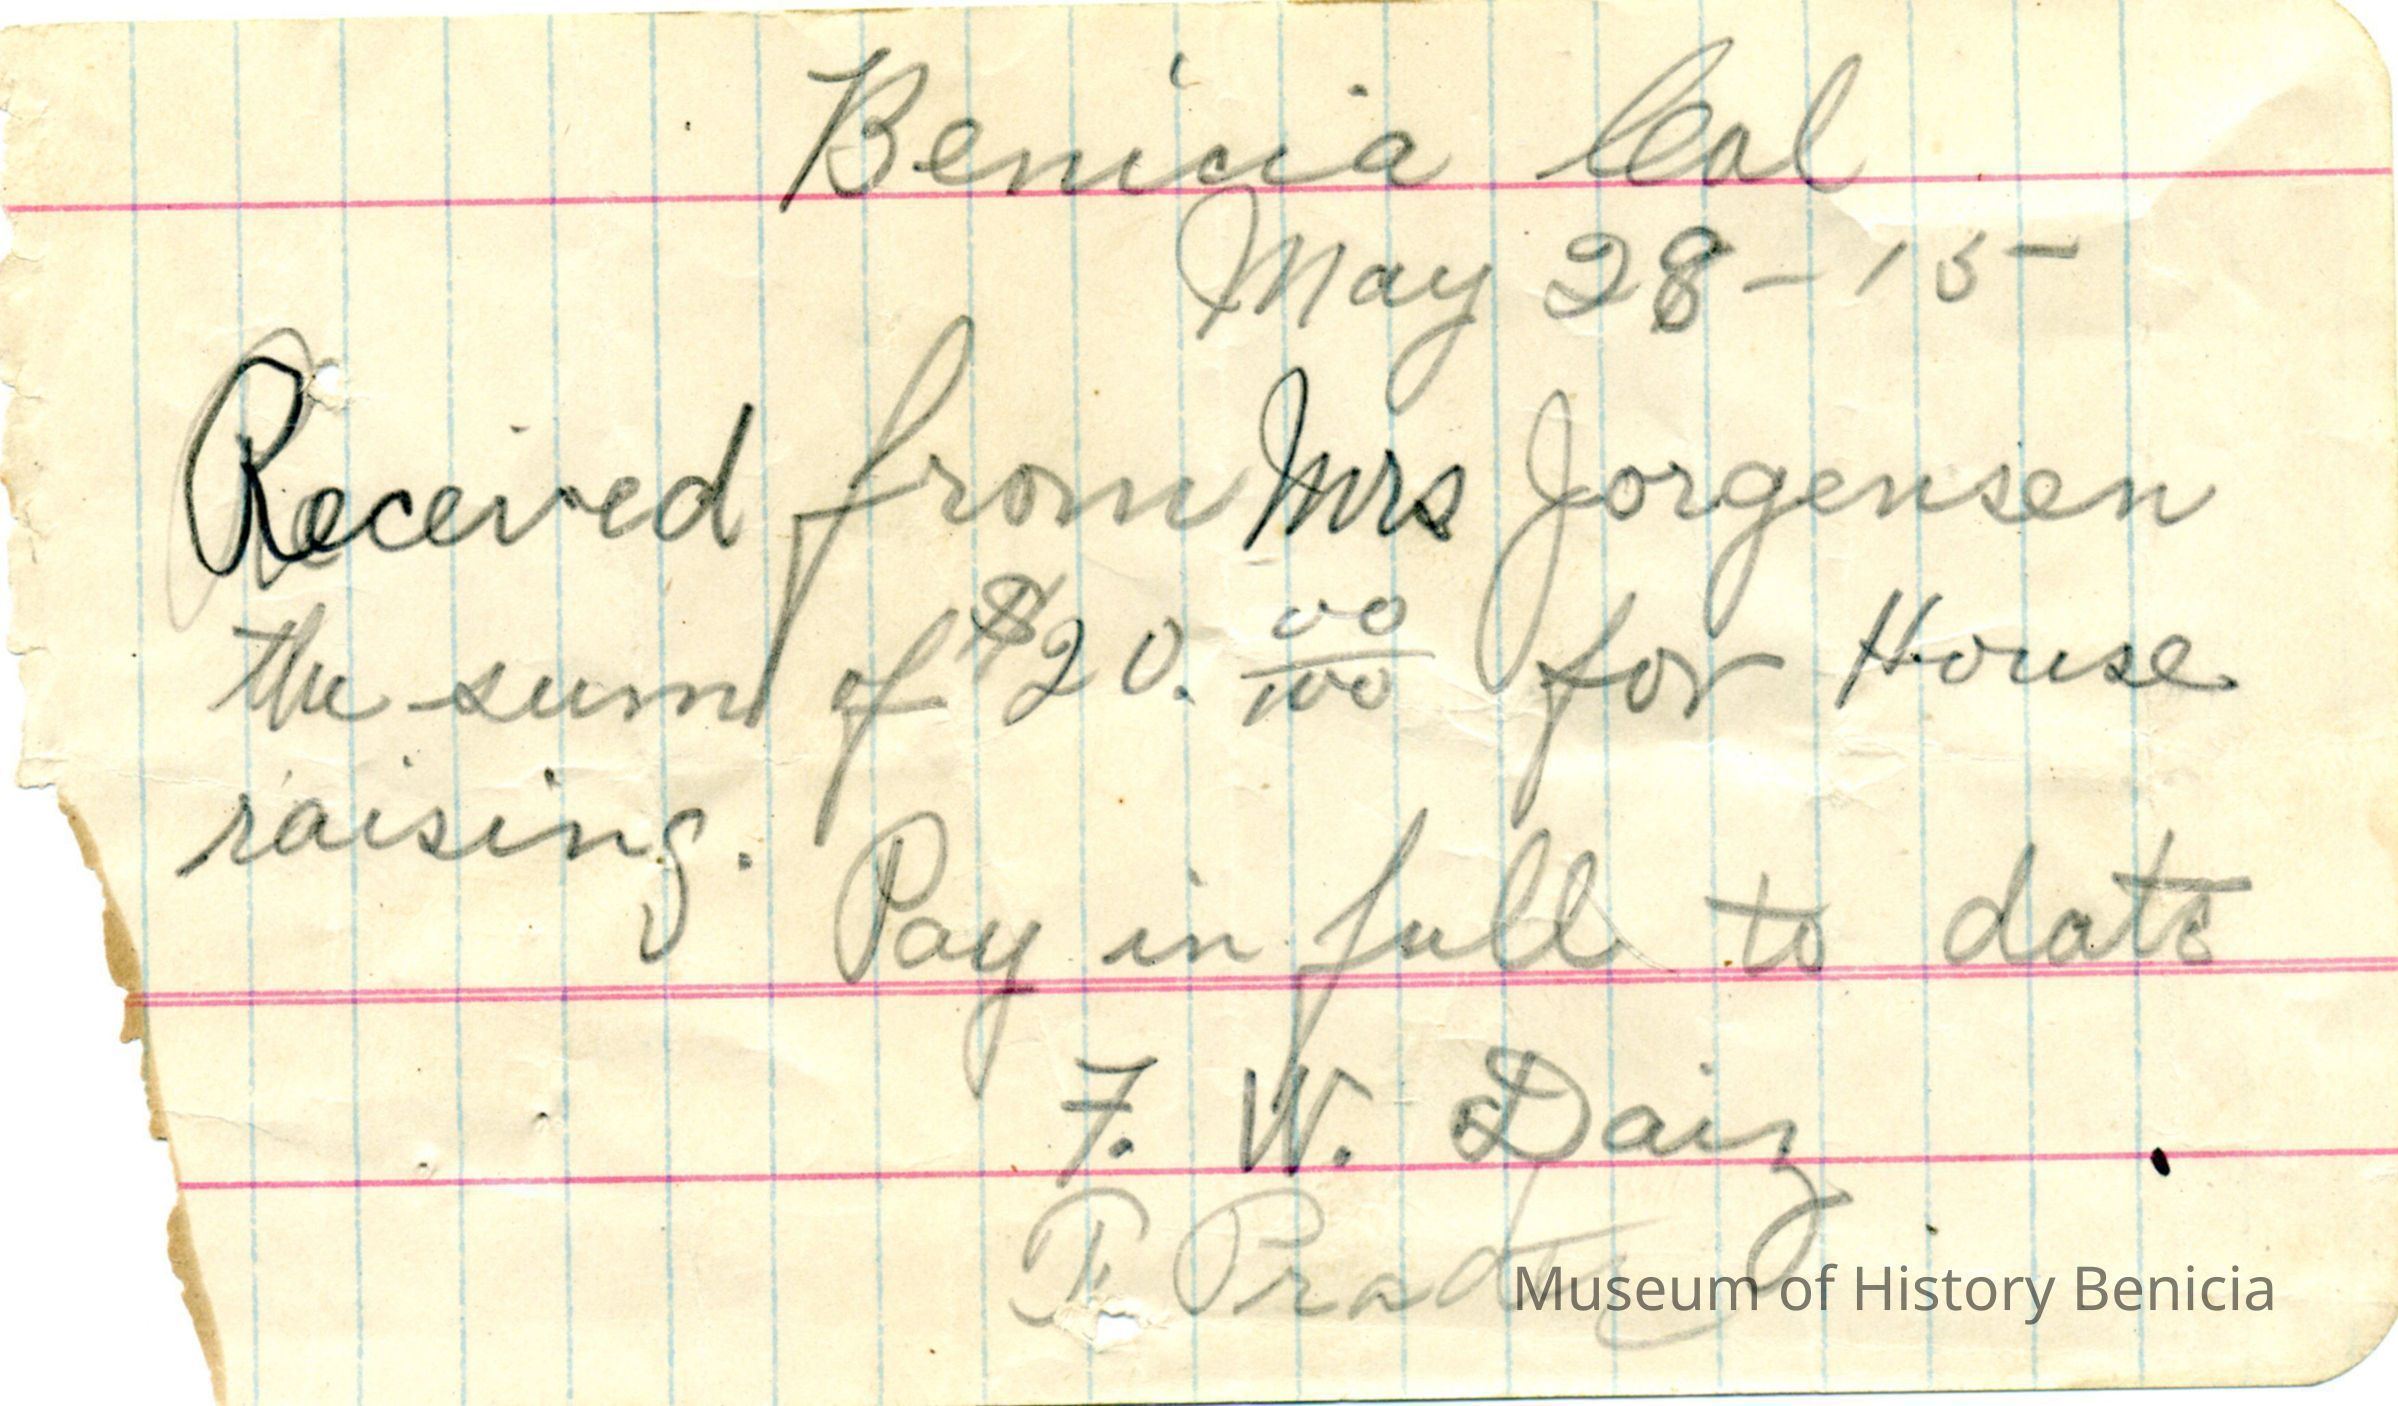 Benicia Cal
May 28-15
Received from Mrs Jorgensen
the sum of $20. 00/100 for House
raising. Pay in full to date
F. W. Daiz
Museum of History Benicia